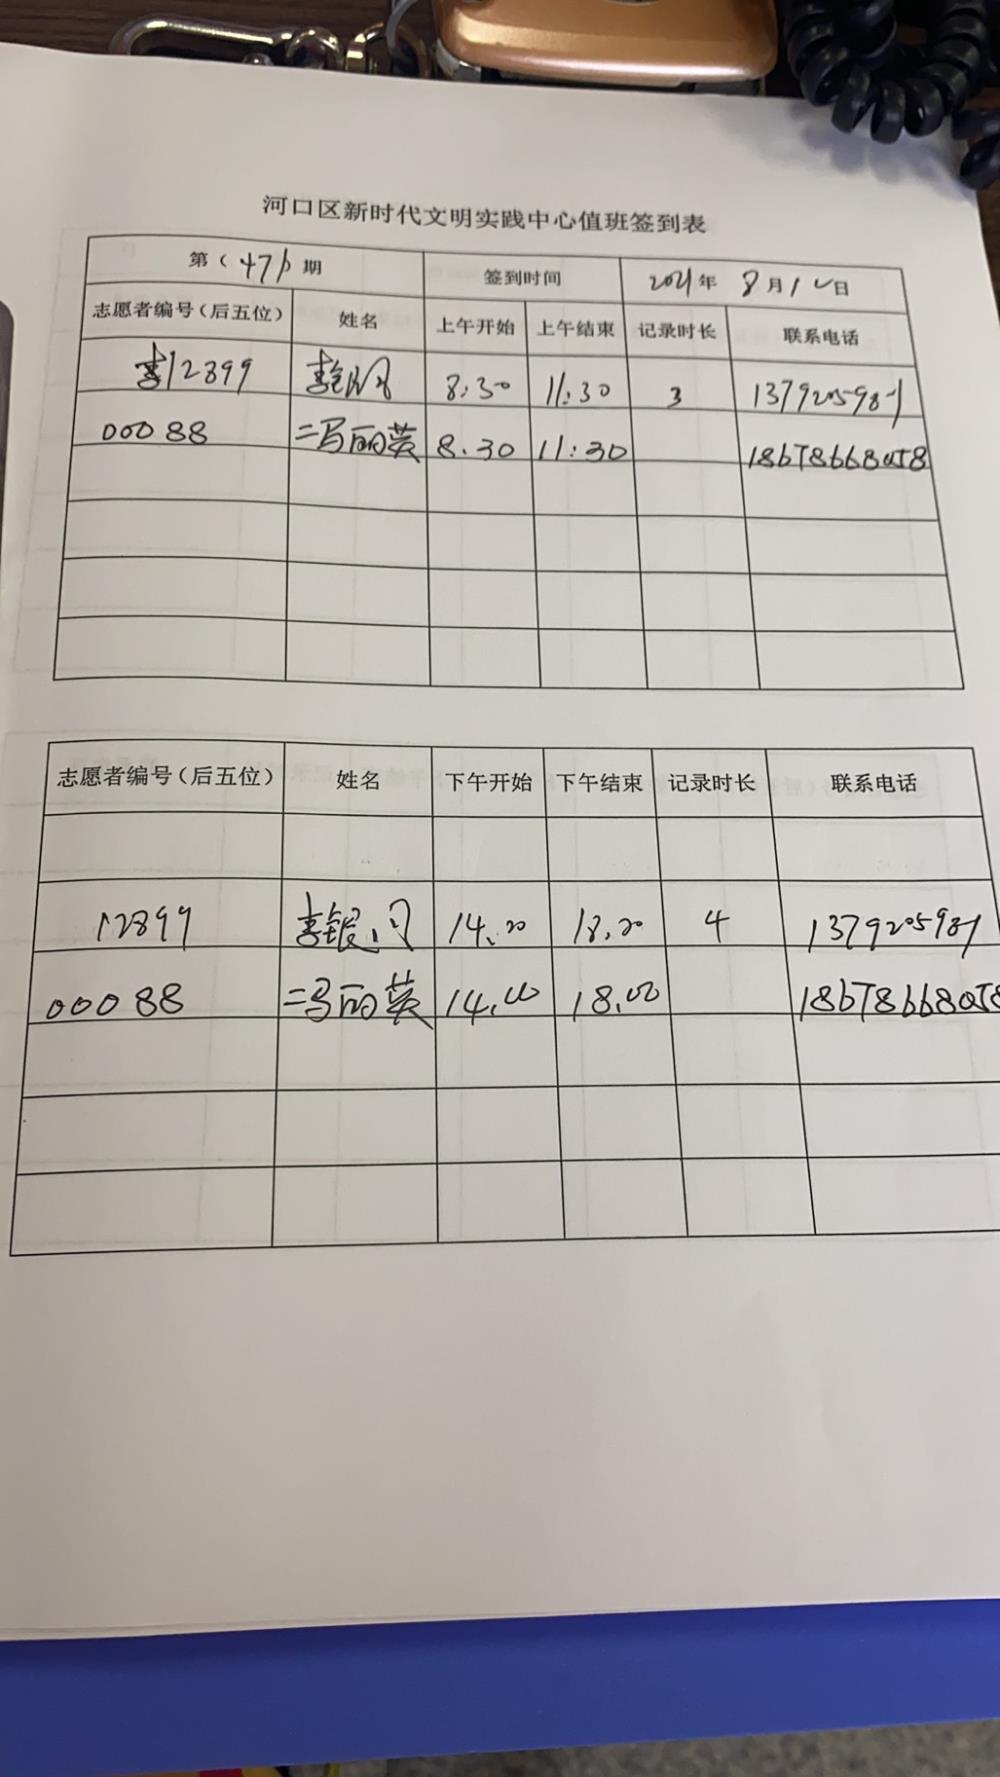 河口区新时代文明实践中心值班签到表
第（ 471 ）期 签到时间 2021年 8月1 日
志愿者编号（后五位） 姓名 上午开始 上午结束 记录时长 联系电话
12899 李 8:30 11:30 3
00088 冯丽英 8.30 11:30 18678668058
志愿者编号（后五位） 姓名 下午开始 下午结束 记录时长 联系电话
12899 李银 14.20 18.20 4
00088 冯丽英 14.00 18.00